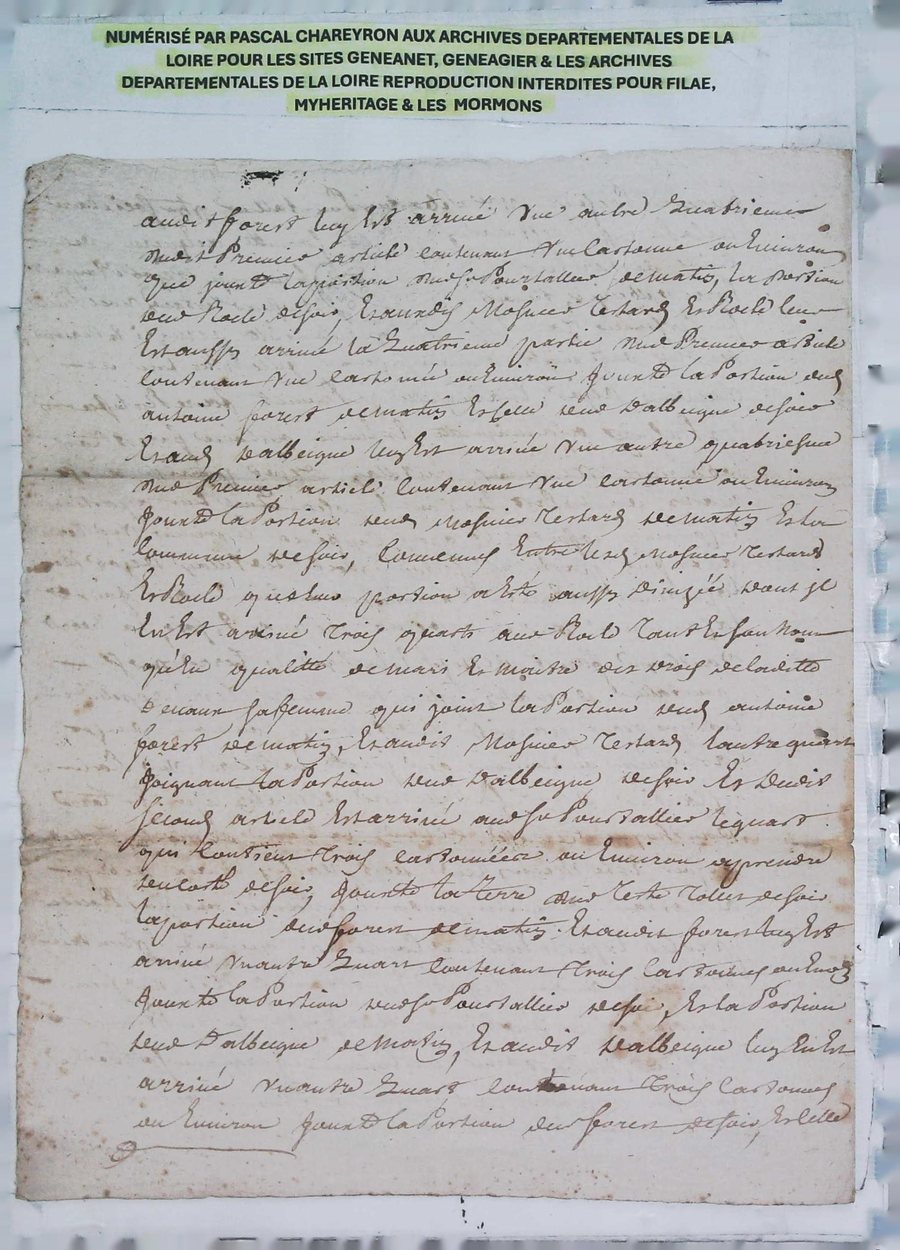 NUMÉRISÉ PAR PASCAL CHAREYRON AUX ARCHIVES DEPARTEMENTALES DE LA
LOIRE POUR LES SITES GENEANET, GENEAGIER & LES ARCHIVES
DEPARTEMENTALES DE LA LOIRE REPRODUCTION INTERDITES POUR FILAE,
MYHERITAGE & LES MORMONS
audit forest luy Est arrivé une autre Quatrieme
dudit Premier article contenant Une Cartonne ou Environ
que joint la portion dudit sr Pourtallier de matin, la portion
dud Roche de soir, Et audit Mosnier Testard Et Roche leur
Est aussy arrivé la Quatrieme partie dud Premier article
contenant une cartonnée ou Environ joint la Portion dud
antoine forest de matin Et celle dud Dalbeigue de soir
Et aud Dalbeigue luy Est arrivée une autre quatriesme
dud Premier article contenant une cartonne ou Environ
joint la Portion desd Mosnier Testard de matin Et la
commune de soir, Entre lesd Mosnier Testard
Et Roche quelle portion a Esté aussy divizée dont il
En Est arrivé Trois quarts aud Roche Tant En son Nom
qu'en qualitté de mari Et maitre des drois de laditte
Devaux sa femme qui joint la Portion dud antoine
forest de matin, Et audit Mosnier Testard l'autre quart
Joignant la Portion dud Dalbeigue de soir Et dudit
second article Est arrivé aud sr Pourtallier le quart
qui contient Trois cartonnées ou Environ a prendre
du coste de soir, joint la Terre de soir
la portion dud forest de matin. Et audit forest luy Est
arrivé un autre Quart contenant Trois Cartonnes ou Envn
Joint la Portion dud sr Pourtallier de soir, Et la Portion
dud Dalbeigue de matin, Et audit Dalbeigue luy En Est
arrivé un autre Quart contenant Trois Cartonnes
ou Environ joint la Portion dud forest de soir, Et celle